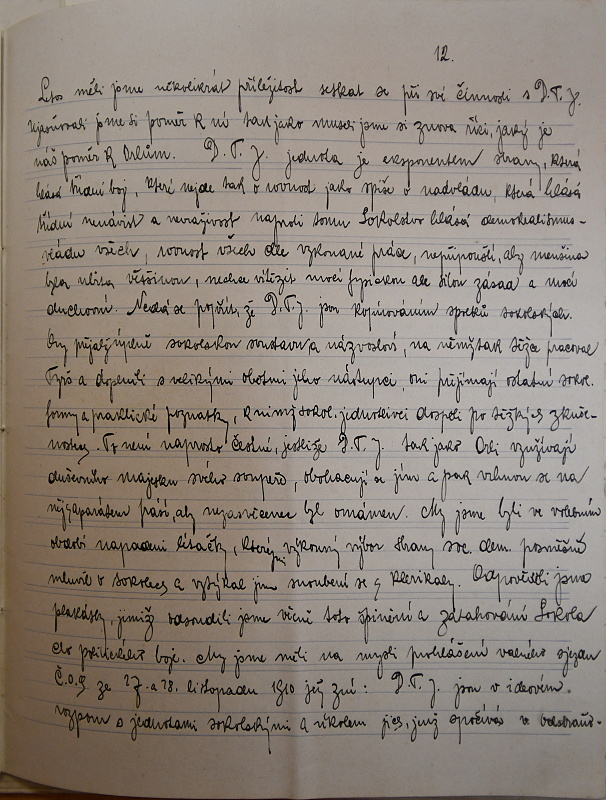 12.
Letos měli jsme několikrát příležitost setkat se při své činnosti s D.T.J.
Ujasňovali jsme si poměr k ní tak jako museli jsme si znova říci, jaký je
náš poměr k Orlům. D.T.J. jednota je exponentem strany, která
hlásá třídní boj, které nejde tak o rovnost jako spíše o nadvládu, která hlásá
třídní nenávist a nevraživost naproti tomu Sokolstvo hlásá demokratismus-
vládu všech, rovnost všech dle vykonané práce, nepřipouští, aby menšina
byla ubita většinou, nechce vítězit mocí fysickou ale silou zásad a mocí
duchovní. Nedá se popříti, že D.T.J. jsou kopírováním spolků sokolských.
Ony přijaly úplně sokolskou soustavu a názvosloví, na němž tak těžce pracoval
Tyrš a doplnili s velikými obětmi jeho nástupci, oni přijímají ostatní sokol.
formy a praktické poznatky, k nimž sokol. jednotlivci dospěli po těžkých zkuše-
nostech. To není naprosto čestné, jestliže D.T.J. tak jako Orli využívají
duševního majetku svého soupeře, obohacují se jím a pak vrhnou se na
něj s aparátem frásí, aby nezasvěcenec byl omámen. My jsme byli ve volebním
období napadeni letáčky, kterými výkonný výbor strany soc. dem. posměšně
mluvil o sokolech a vytýkal jim snoubení se s klerikály. Odpověděli jsme
plakáty, jimiž odsoudili jsme věcně toto špinění a zatahování Sokola
do politického boje. My jsme měli na mysli prohlášení valného sjezdu
Č.O.S. ze 27. a 28. listopadu 1910 jež zní: D.T.J. jsou v ideovém
rozporu s jednotami sokolskými a úkolem jich, jenž spočívá v odstraň-